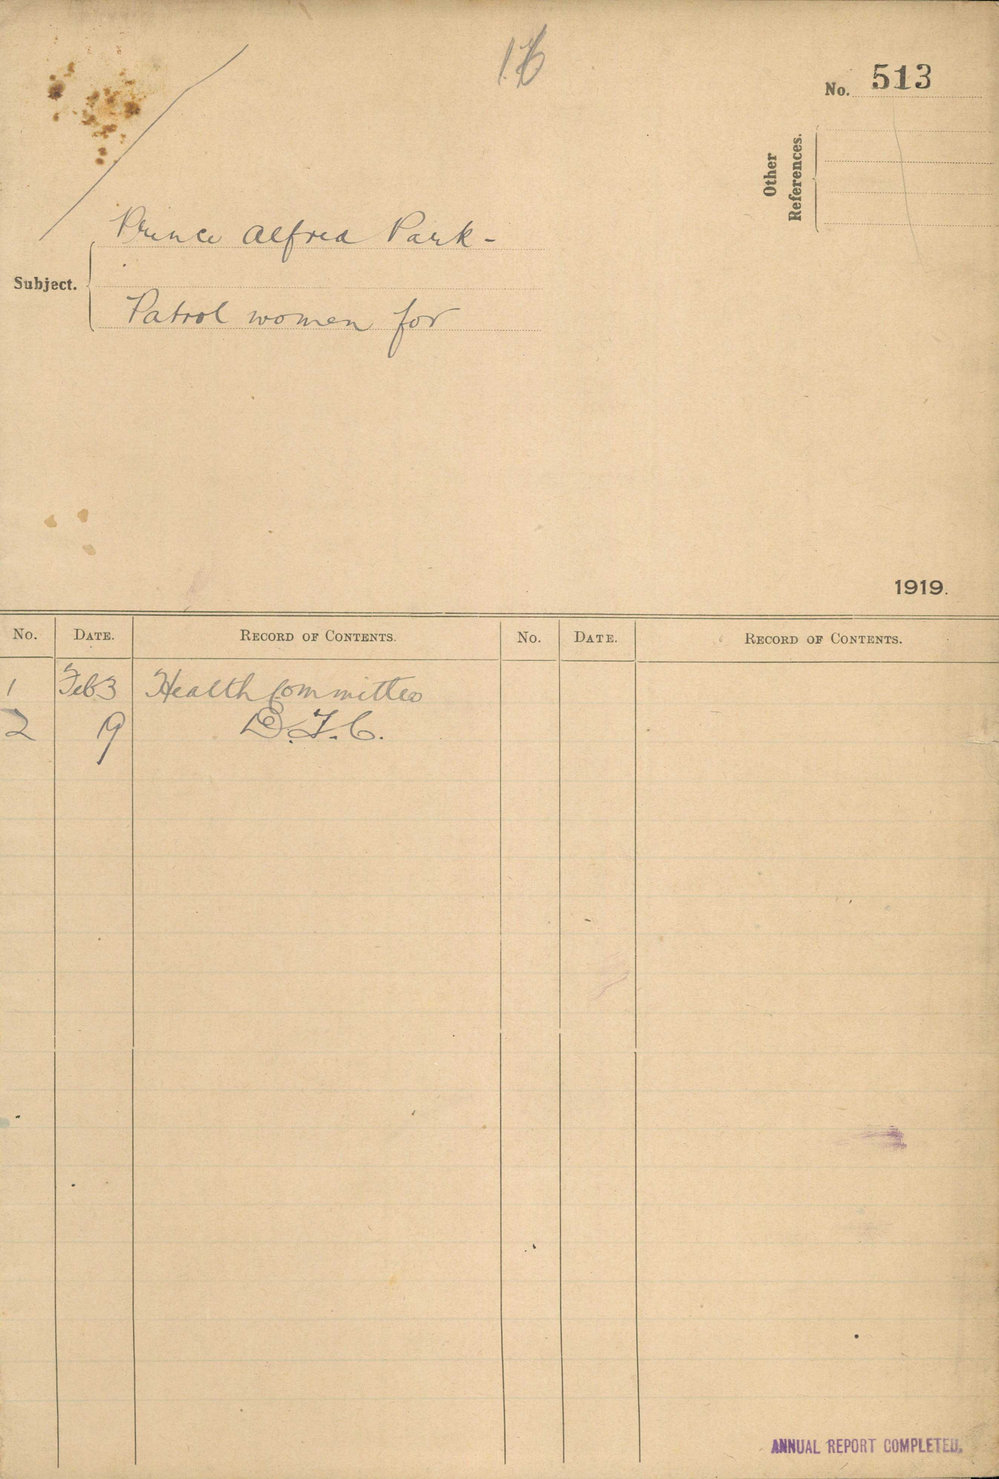 No. 513
Other
References.
Prince Alfred Park -
Subject.
Patrol women for
1919.
No. DATE. RECORD OF CONTENTS. No. DATE. RECORD OF CONTENTS.
1 Feb 3 Health Committee
2 9
ANNUAL REPORT COMPLETED.